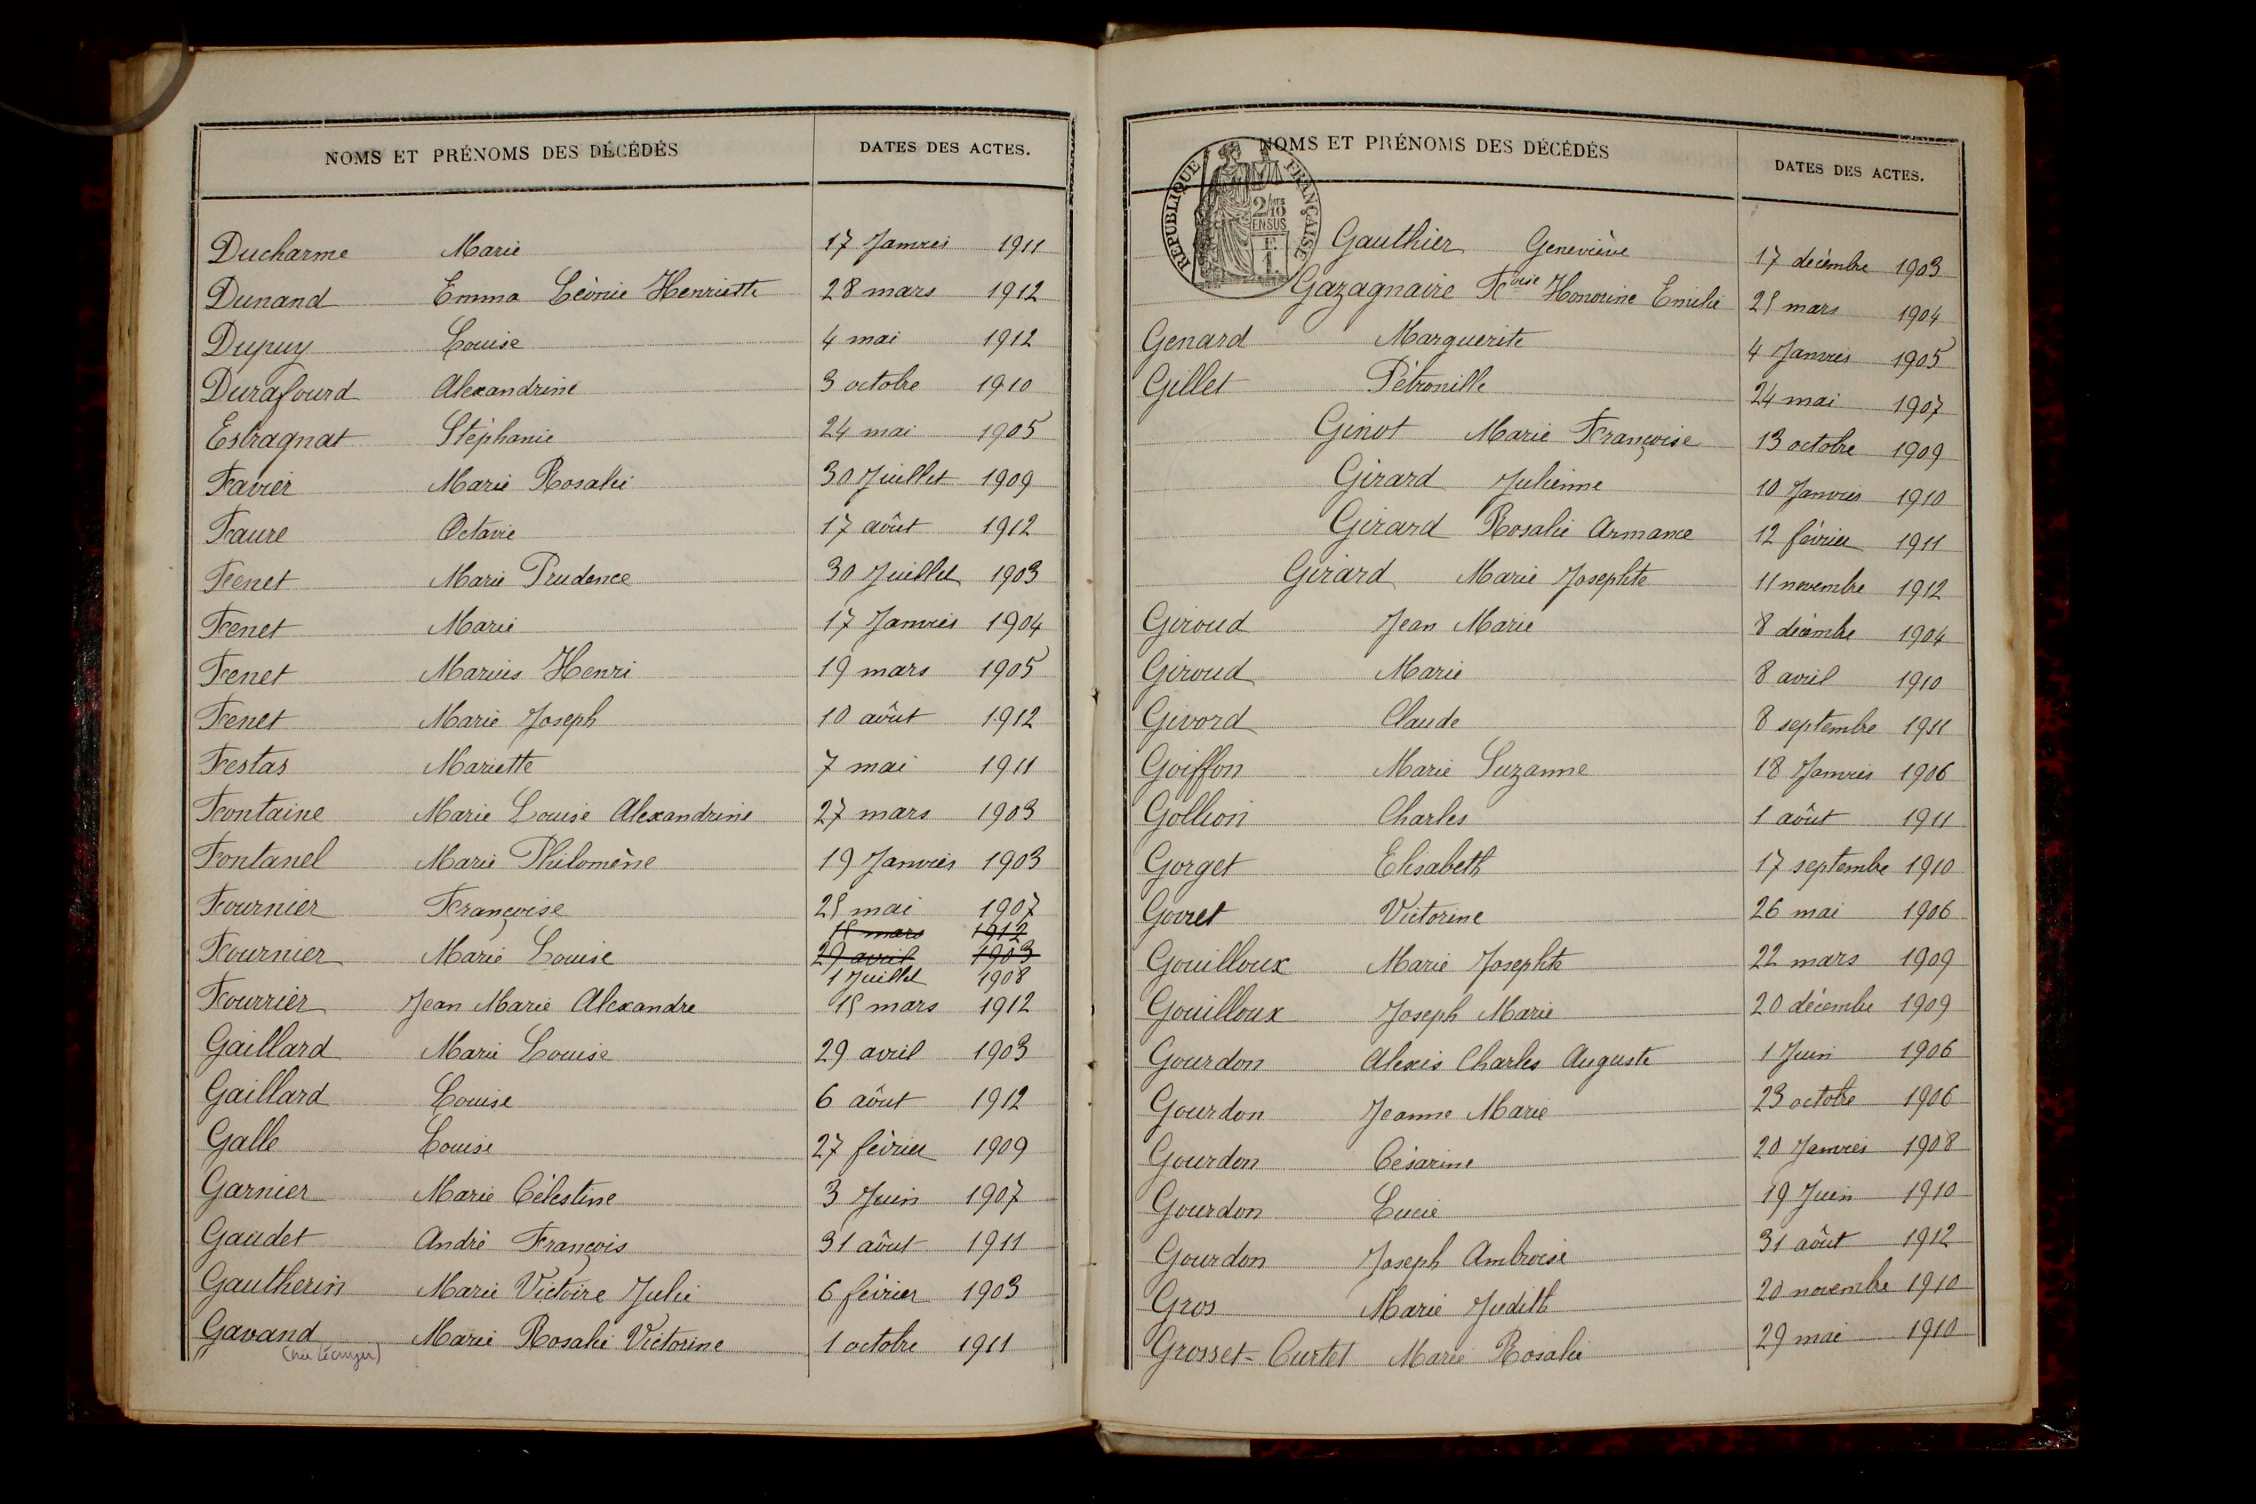 NOMS ET PRÉNOMS DES DÉCÉDÉS DATES DES ACTES.
Ducharme Marie 17 Janvier 1911
Dunand Emma Léonie Henriette 28 mars 1912
Dupuy Louise 4 mai 1912
Durafourd Alexandrine 3 octobre 1910
Estragnat Stéphanie 24 mai 1905
Favier Marie Rosalie 30 Juillet 1909
Faure Octavie 17 août 1912
Fenet Marie Prudence 30 Juillet 1903
Fenet Marie 17 Janvier 1904
Fenet Marius Henri 19 mars 1905
Fenet Marie Joseph 10 août 1912
Festas Mariette 7 mai 1911
Fontaine Marie Louise Alexandrine 27 mars 1903
Fontanel Marie Philomène 19 Janvier 1903
Fournier Françoise 25 mai 1907
15 mars 1912
Fournier Marie Louise 29 avril 1903
1 Juillet 1908
Fourrier Jean Marie Alexandre 15 mars 1912
Gaillard Marie Louise 29 avril 1903
Gaillard Louise 6 août 1912
Galle Louise 27 février 1909
Garnier Marie Célestine 3 Juin 1907
Gaudet André François 31 août 1911
Gautherin Marie Victoire Julie 6 février 1903
Gavand Marie Rosalie Victorine 1 octobre 1911
(née Lécuyer)
NOMS ET PRÉNOMS DES DÉCÉDÉS DATES DES ACTES.
RÉPUBLIQUE FRANÇAISE
2/10 EN SUS
F. 1.
Gauthier Geneviève 17 décembre 1903
Gazagnaire Fçoise Honorine Emilie 25 mars 1904
Genard Marguerite 4 Janvier 1905
Gillet Pétronille 24 mai 1907
Ginot Marie Françoise 13 octobre 1909
Girard Julienne 10 Janvier 1910
Girard Rosalie Armance 12 février 1911
Girard Marie Josephte 11 novembre 1912
Giroud Jean Marie 8 décembre 1904
Giroud Marie 8 avril 1910
Givord Claude 8 septembre 1911
Goiffon Marie Suzanne 18 Janvier 1906
Gollion Charles 1 août 1911
Gorget Elisabeth 17 septembre 1910
Gouret Victorine 26 mai 1906
Gouilloux Marie Josephte 22 mars 1909
Gouilloux Joseph Marie 20 décembre 1909
Gourdon Alexis Charles Auguste 1 Juin 1906
Gourdon Jeanne Marie 23 octobre 1906
Gourdon Césarine 20 Janvier 1908
Gourdon Lucie 19 Juin 1910
Gourdon Joseph Ambroise 31 août 1912
Gros Marie Judith 20 novembre 1910
Grosset-Curtet Marie Rosalie 29 mai 1910